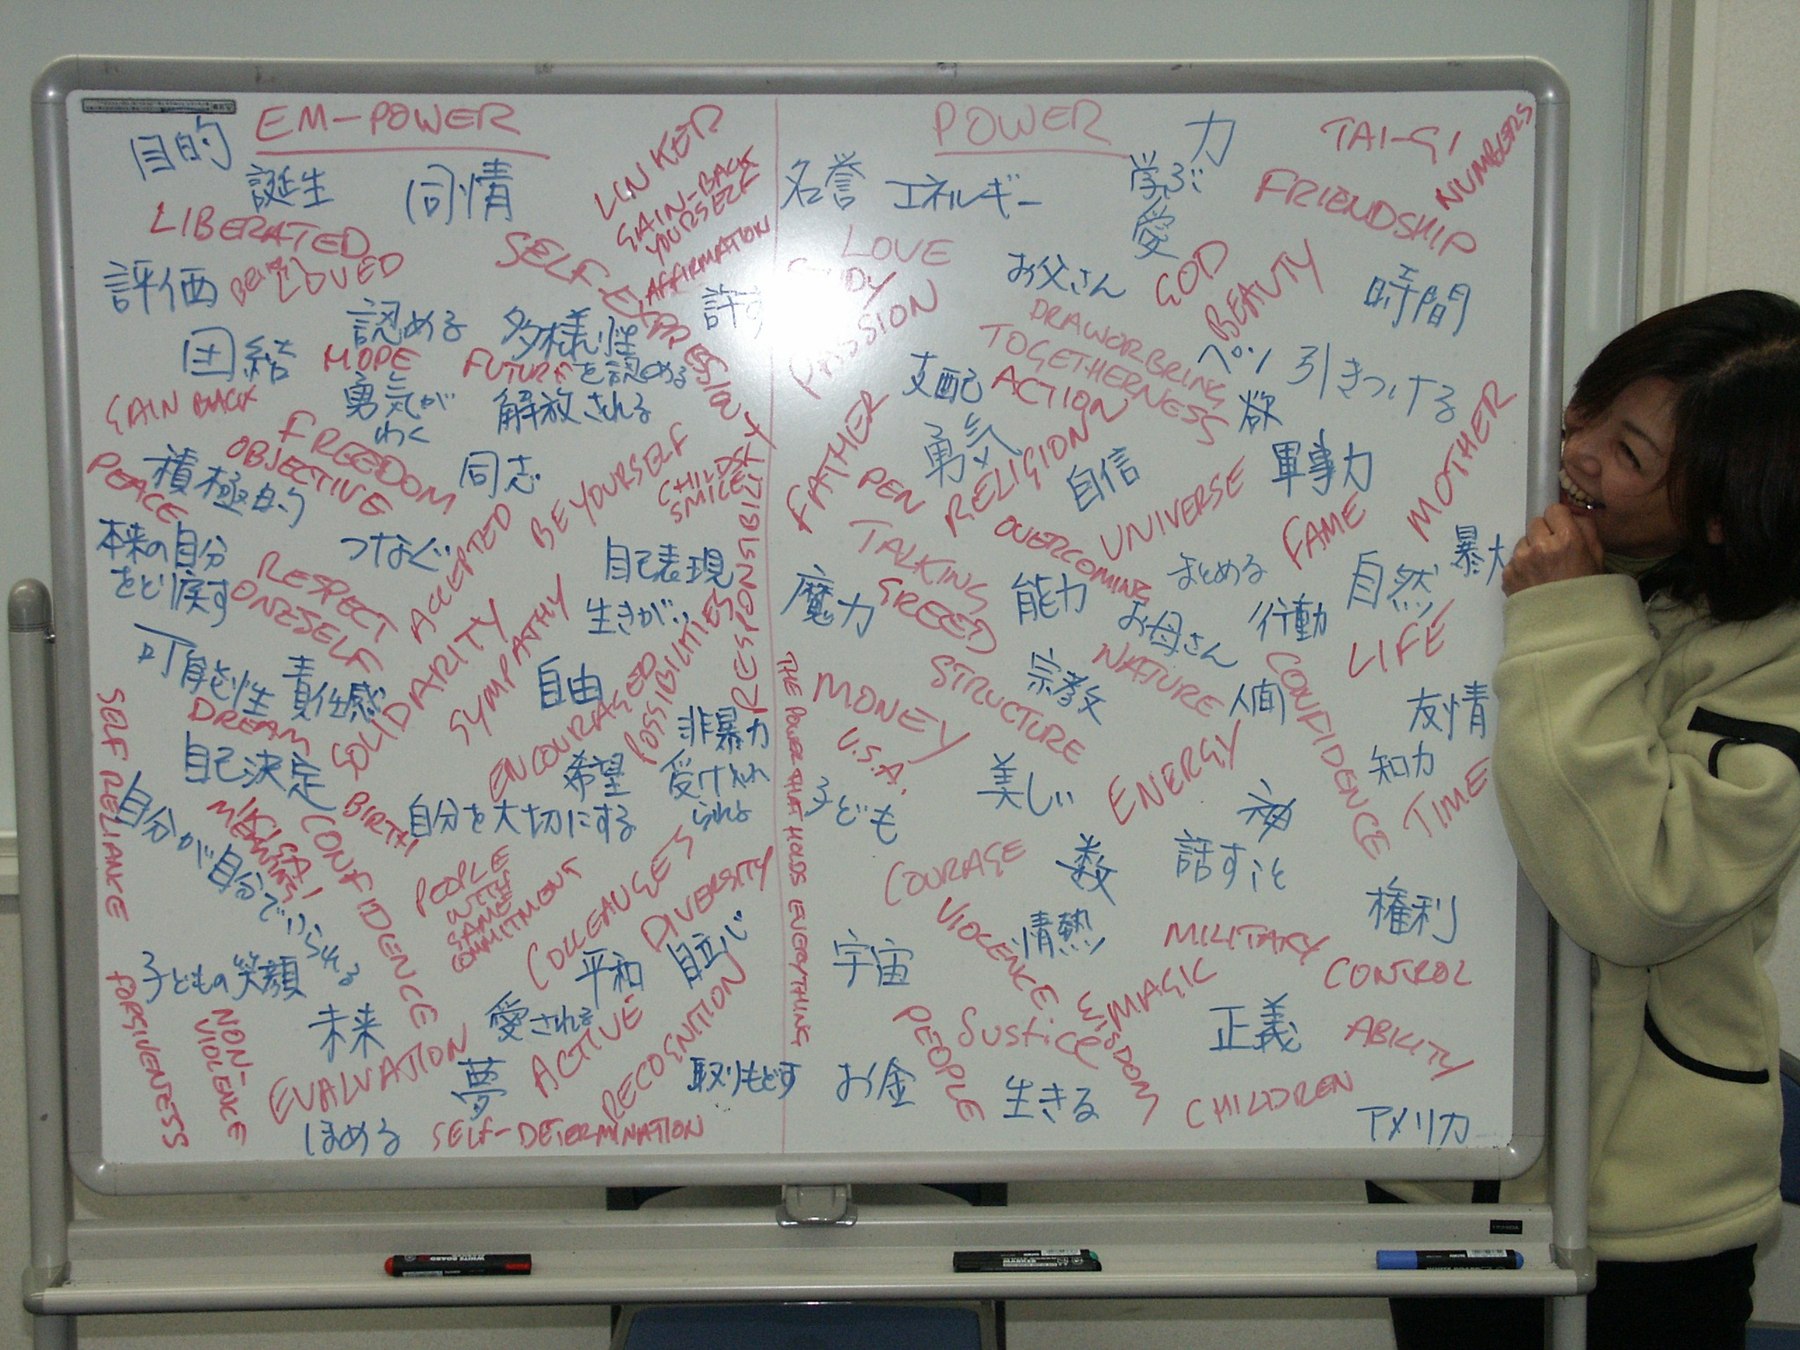 EM-POWER
目的
誕生
同情
LINKER
GAIN-BACK
YOURSELF
AFFIRMATION
LIBERATED
BEING LOVED
SELF-EXPRESSION
評価
認める
多様性
を認める
団結
HOPE
FUTURE
勇気が
わく
解放される
GAIN BACK
FREEDOM
OBJECTIVE
同志
BE YOURSELF
CHILD'S
SMILE
PEACE
積極的
本来の自分
をど戻す
つなぐ
ACCEPTED
自己表現
RESPECT
ONESELF
生きがい
RESPONSIBILITY
可能性
責任感
SOLIDARITY
SYMPATHY
自由
ENCOURAGED
POSSIBILITIES
DREAM
自己決定
非暴力
希望
受け入れ
られる
SELF RELIANCE
自分が自分でいられる
BIRTH
自分を大切にする
CONFIDENCE
PEOPLE
WITH
SAME
COMMITMENT
COLLEAUGES
DIVERSITY
子どもの笑顔
平和
自立
FORGIVENESS
NON-
VIOLENCE
未来
愛される
ACTIVE
RECOGNITION
EVALUATION
夢
取りもどす
ほめる
SELF-DETERMINATION
POWER
力
TAI-GI
NUMBERS
名誉
エネルギー
学ぶ
愛
FRIENDSHIP
LOVE
お父さん
GOD
BEAUTY
時間
PASSION
DRAW OR BRING
TOGETHERNESS
ペン
引きつける
支配
ACTION
欲
FATHER
勇気
PEN
RELIGION
自信
軍事力
MOTHER
UNIVERSE
FAME
TALKING
OVERCOMING
まとめる
暴力
魔力
GREED
能力
お母さん
行動
自然
LIFE
THE POWER THAT HOLDS EVERYTHING
MONEY
STRUCTURE
宗教
NATURE
人間
CONFIDENCE
友情
U.S.A.
子ども
美しい
ENERGY
知力
TIME
COURAGE
数
話すこと
権利
VIOLENCE
情熱
MILITARY
宇宙
CONTROL
MAGIC
WISDOM
PEOPLE
Justice
正義
ABILITY
お金
生きる
CHILDREN
アメリカ